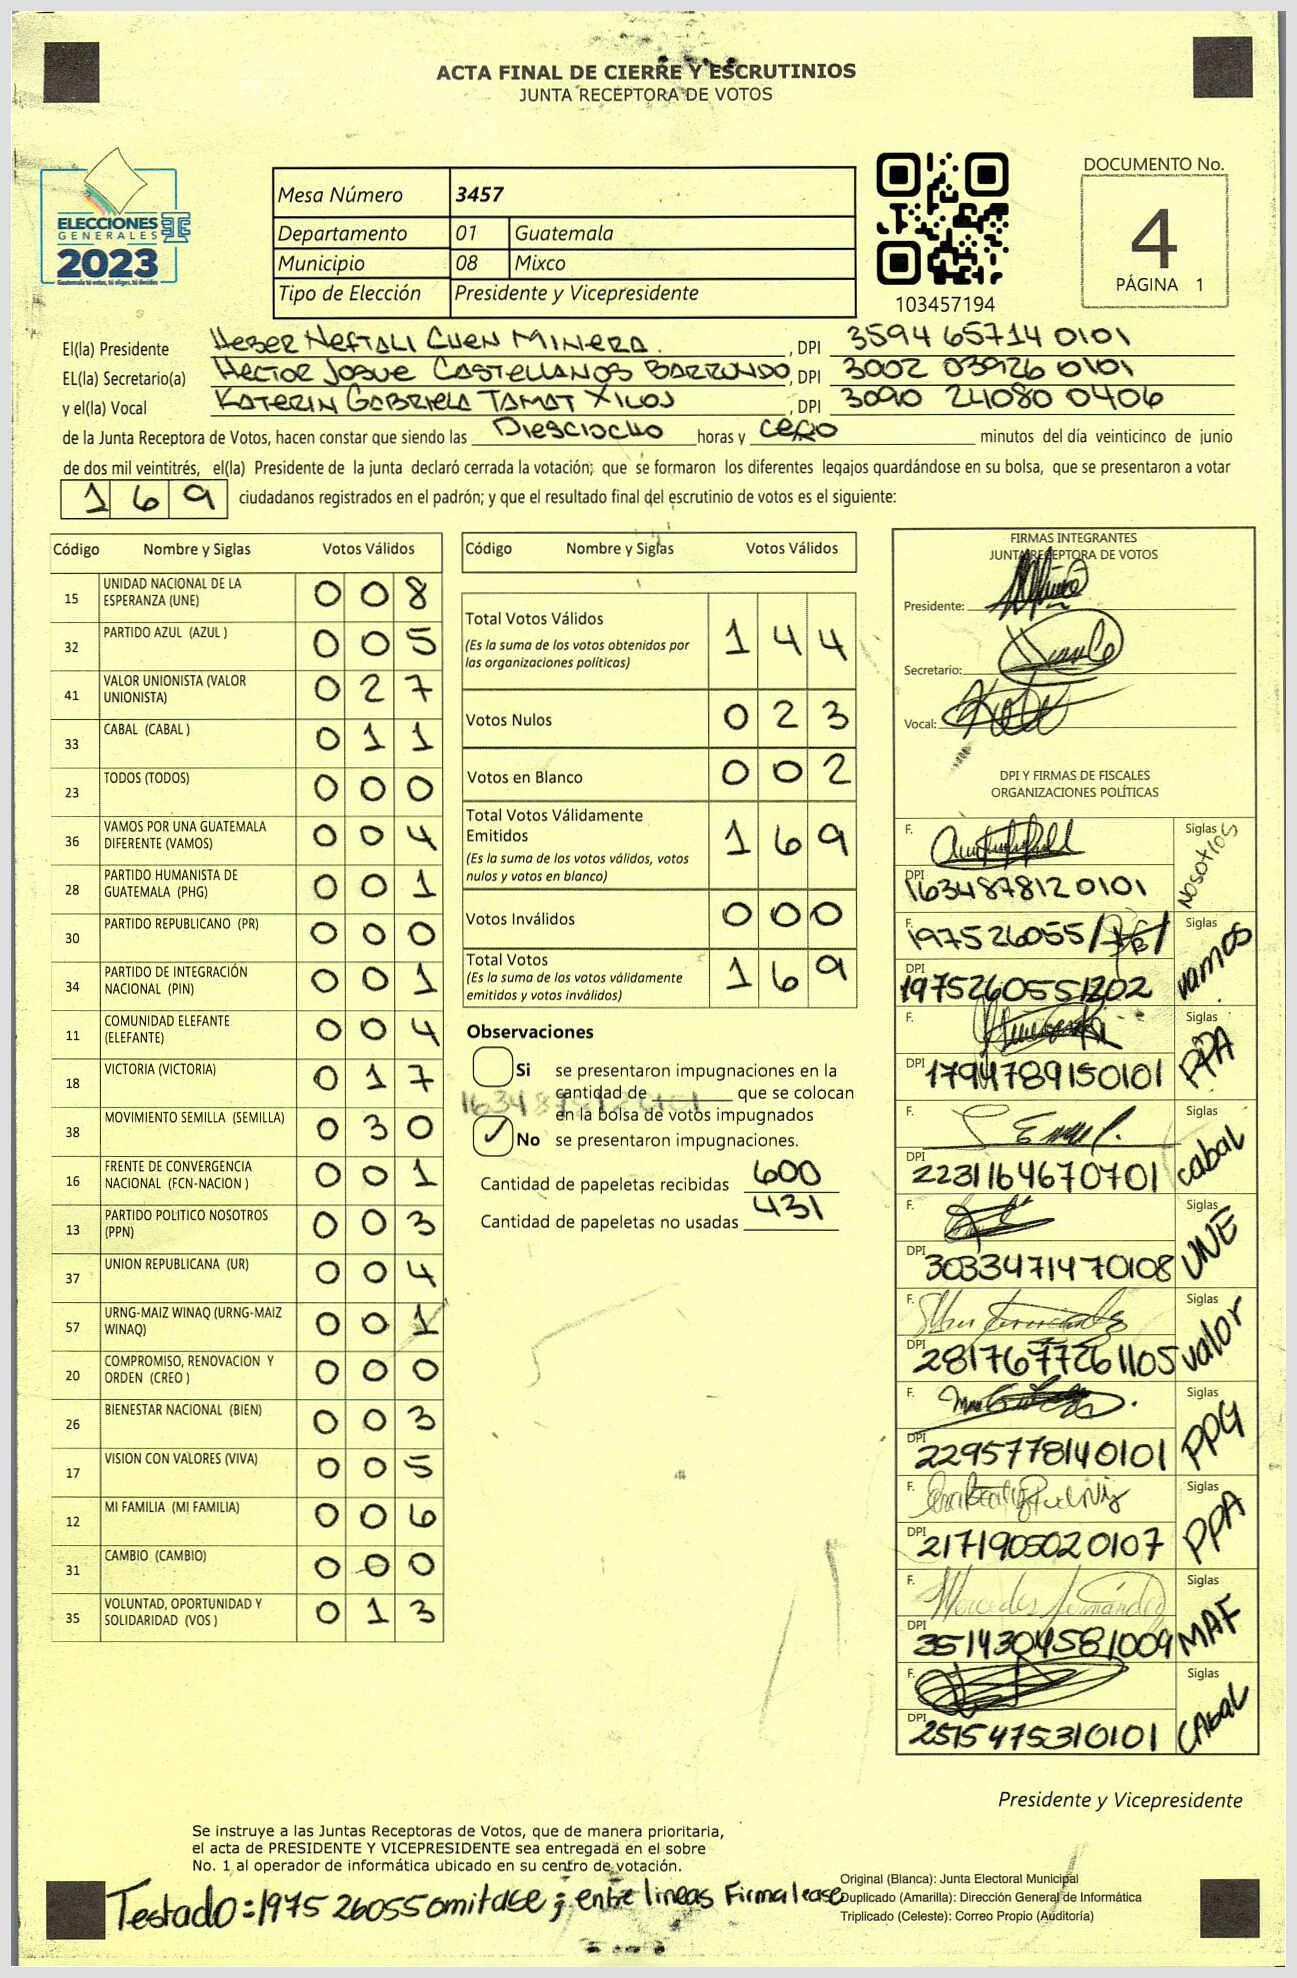 ACTA FINAL DE CIERRE Y ESCRUTINIOS
JUNTA RECEPTORA DE VOTOS
ELECCIONES
GENERALES
2023
Guatemala tú votas, tú eliges, tú decides
Mesa Número 3457
Departamento 01 Guatemala
Municipio 08 Mixco
Tipo de Elección Presidente y Vicepresidente
103457194
DOCUMENTO No.
4
PÁGINA 1
El(la) Presidente Heber Neftali Cuen Minera. , DPI 3594 65714 0101
EL(la) Secretario(a) Hector Josue Castellanos Barrundo, DPI 3002 03926 0101
y el(la) Vocal Katerin Gabriela Tamat Xiloj , DPI 3090 24080 0406
de la Junta Receptora de Votos, hacen constar que siendo las Diesciocho horas y cero minutos del día veinticinco de junio
de dos mil veintitrés, el(la) Presidente de la junta declaró cerrada la votación; que se formaron los diferentes legajos quardándose en su bolsa, que se presentaron a votar
169 ciudadanos registrados en el padrón; y que el resultado final del escrutinio de votos es el siguiente:
Código Nombre y Siglas Votos Válidos
15 UNIDAD NACIONAL DE LA ESPERANZA (UNE) 008
32 PARTIDO AZUL (AZUL ) 005
41 VALOR UNIONISTA (VALOR UNIONISTA) 027
33 CABAL (CABAL ) 011
23 TODOS (TODOS) 000
36 VAMOS POR UNA GUATEMALA DIFERENTE (VAMOS) 004
28 PARTIDO HUMANISTA DE GUATEMALA (PHG) 001
30 PARTIDO REPUBLICANO (PR) 000
34 PARTIDO DE INTEGRACIÓN NACIONAL (PIN) 001
11 COMUNIDAD ELEFANTE (ELEFANTE) 004
18 VICTORIA (VICTORIA) 017
38 MOVIMIENTO SEMILLA (SEMILLA) 030
16 FRENTE DE CONVERGENCIA NACIONAL (FCN-NACION ) 001
13 PARTIDO POLITICO NOSOTROS (PPN) 003
37 UNION REPUBLICANA (UR) 004
57 URNG-MAIZ WINAQ (URNG-MAIZ WINAQ) 001
20 COMPROMISO, RENOVACION Y ORDEN (CREO ) 000
26 BIENESTAR NACIONAL (BIEN) 003
17 VISION CON VALORES (VIVA) 005
12 MI FAMILIA (MI FAMILIA) 006
31 CAMBIO (CAMBIO) 000
35 VOLUNTAD, OPORTUNIDAD Y SOLIDARIDAD (VOS ) 013
Código Nombre y Siglas Votos Válidos
Total Votos Válidos 144
(Es la suma de los votos obtenidos por
las organizaciones políticas)
Votos Nulos 023
Votos en Blanco 002
Total Votos Válidamente
Emitidos 169
(Es la suma de los votos válidos, votos
nulos y votos en blanco)
Votos Inválidos 000
Total Votos 169
(Es la suma de los votos válidamente
emitidos y votos inválidos)
Observaciones
Si se presentaron impugnaciones en la
cantidad de ________ que se colocan
en la bolsa de votos impugnados
✓ No se presentaron impugnaciones.
Cantidad de papeletas recibidas 600
Cantidad de papeletas no usadas 431
FIRMAS INTEGRANTES
JUNTA RECEPTORA DE VOTOS
Presidente:
Secretario:
Vocal:
DPI Y FIRMAS DE FISCALES
ORGANIZACIONES POLÍTICAS
F. Siglas Nosotros
DPI 1634878120101
F. 197526055 Siglas vamos
DPI 1975260551202
F. Siglas PPA
DPI 1794789150101
F. Siglas cabal
DPI 2231164670701
F. Siglas UNE
DPI 3033471470108
F. Siglas valor
DPI 2817677261105
F. Siglas PPG
DPI 2295778140101
F. Siglas PPA
DPI 2171905020107
F. Mercedes Fernández Siglas MAF
DPI 3514304581009
F. Siglas CAbal
DPI 2515475310101
Presidente y Vicepresidente
Se instruye a las Juntas Receptoras de Votos, que de manera prioritaria,
el acta de PRESIDENTE Y VICEPRESIDENTE sea entregada en el sobre
No. 1 al operador de informática ubicado en su centro de votación.
Testado = 197526055 omitase ; entre lineas Firma lease
Original (Blanca): Junta Electoral Municipal
Duplicado (Amarilla): Dirección General de Informática
Triplicado (Celeste): Correo Propio (Auditoría)